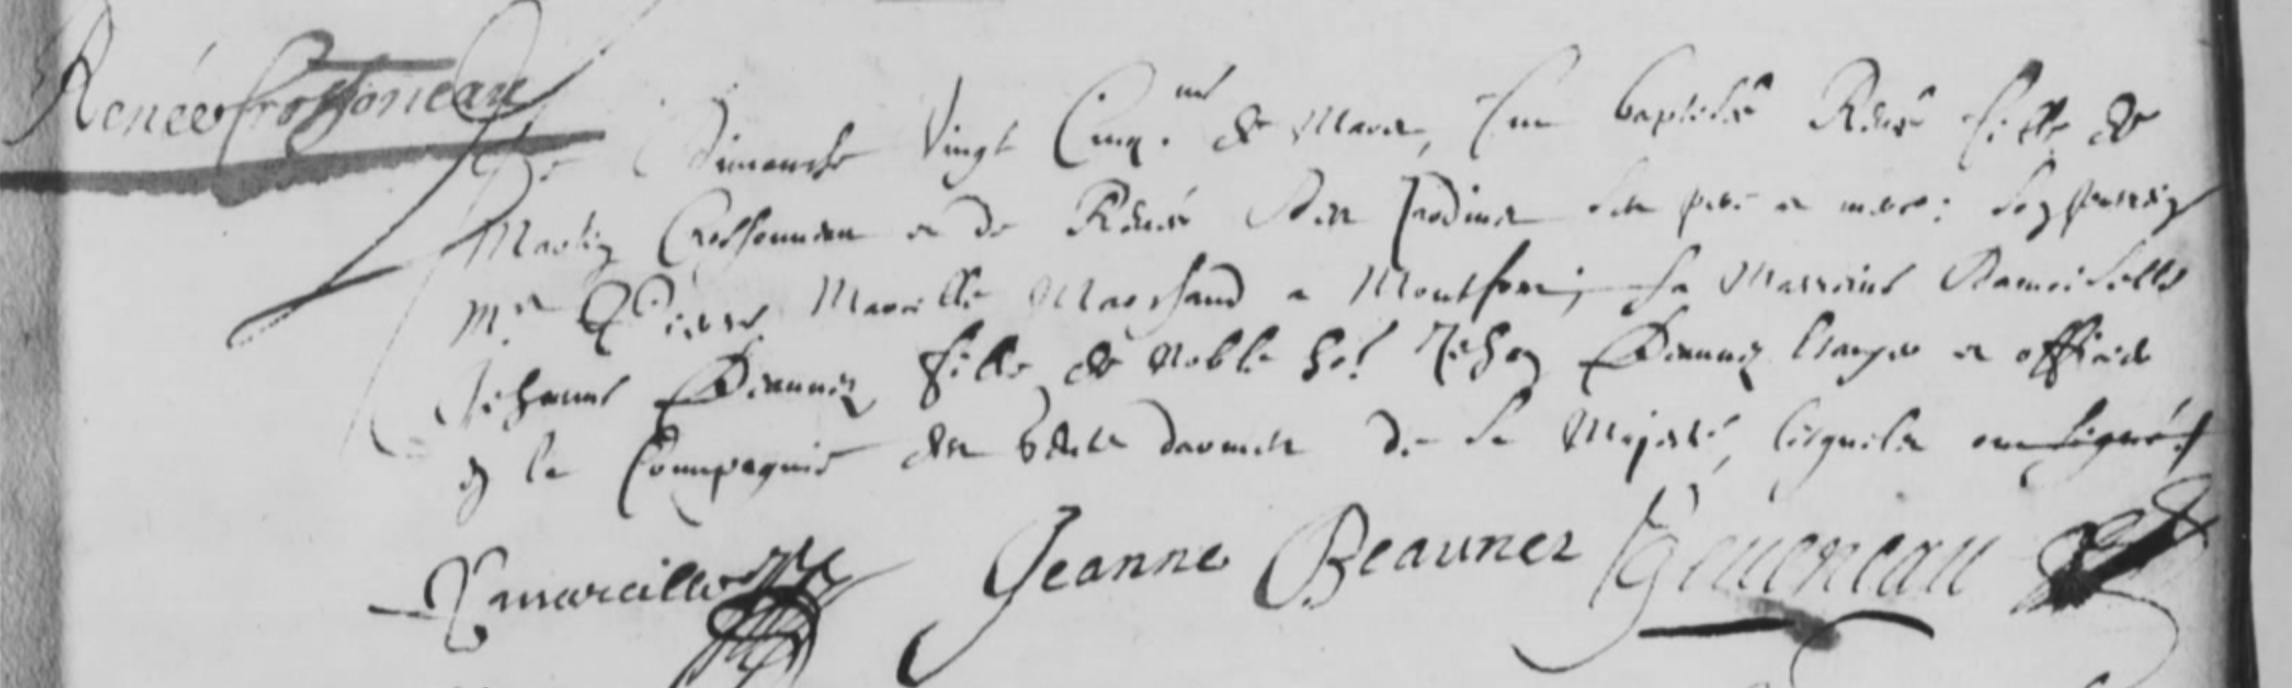 Renée Crossonneau
Le Dimanche Vingt Cinq.me de Mars, fut baptisée Renée fille de
Martin Crossonneau et de Renée des Jardins ses pere et mere: son parrain
Mre Pierre Marcille Marchand a Montfort; sa Marraine Damoiselle
Jehanne Beaunez fille de Noble ho! Jehan Beaunez et officier
en la Compagnie des de sa Majesté, lesquels ont signés
P marcille Jeanne Beaunez